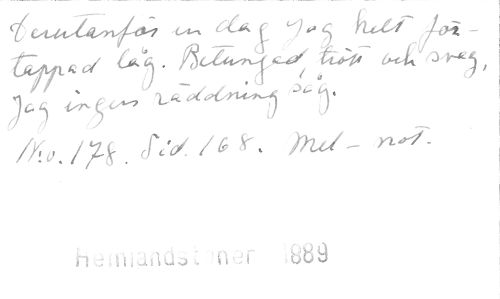 Derutanför en dag jag helt för-
tappad låg. Betungad, trött och svag,
Jag ingen räddning såg.
N:o. 178. Sid. 168. Mel-not.
Hemlandstoner 1889